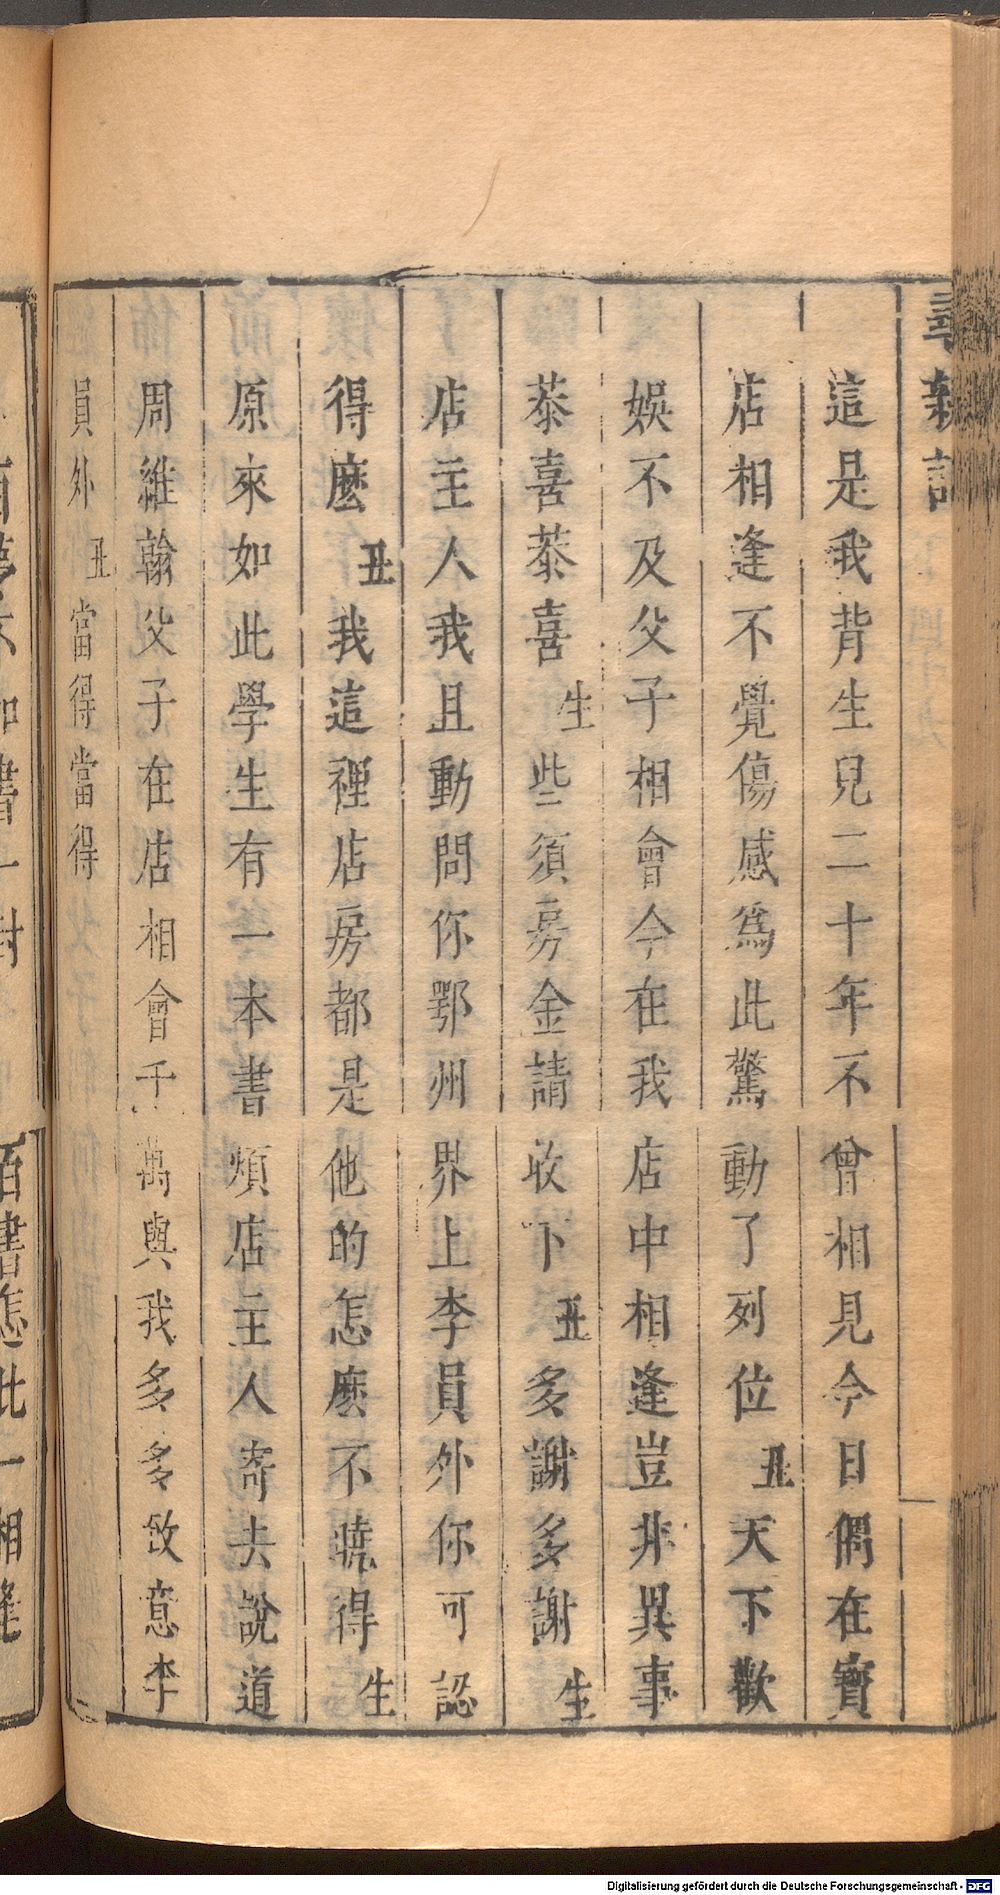 尋親記
這是我背生兒二十年不曾相見今日偶在寶
店相逢不覺傷感爲此驚動了列位丑天下歡
娛不及父子相會今在我店中相逢豈非異事
恭喜恭喜生些須房金請收下丑多謝多謝生
店主人我且動問你鄂州界上李員外你可認
得麼丑我這裡店房都是他的怎麽不曉得生
原來如此學生有一本書煩店主人寄去說道
周維翰父子在店相會千萬與我多多致意李
員外丑當得當得
Digitalisierung gefördert durch die Deutsche Forschungsgemeinschaft - DFG